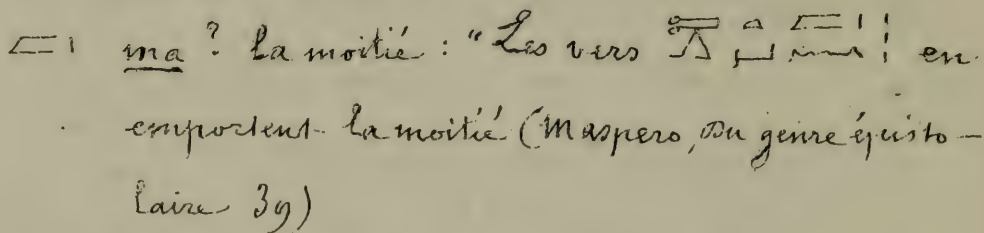 𓐛𓏤 ma ? la moitié : "Les vers en
emportent la moitié (Maspero, Du genre épisto-
laire 39)